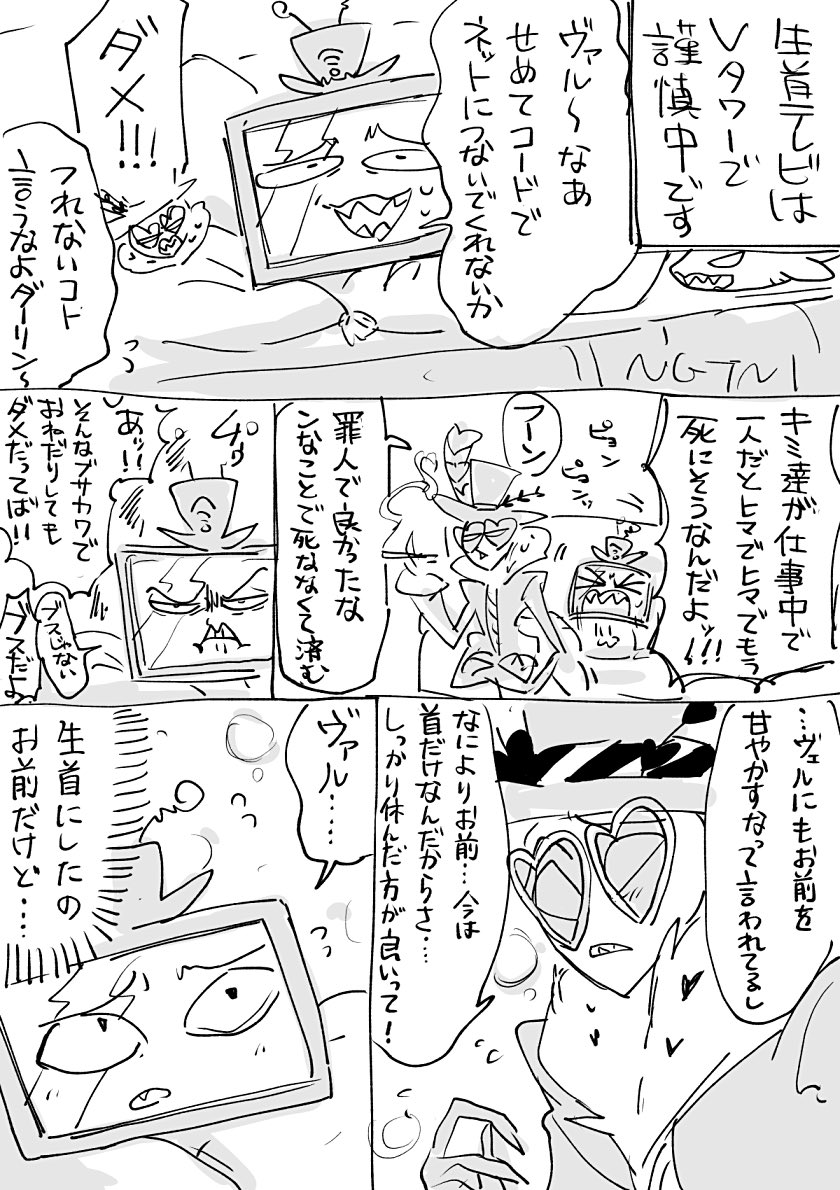 生首テレビは
Vタワーで
謹慎中です
ヴァル〜なあ
せめてコードで
ネットにつないでくれないか
ダメ!!!
つれないコト
言うなよダーリン〜
キミ達が仕事中で
一人だとヒマでヒマでもう
死にそうなんだよッ!!!
ピョン
ピョンッ
フーン
罪人で良かったな
ンなことで死ななくて済む
チッ
あッ!!
そんなブサカワで
おねだりしても
ダメだってば!!
ブスじゃない
ブスだよ
…ヴェルにもお前を
甘やかすなって言われてるし
なによりお前…今は
首だけなんだからさ…
しっかり休んだ方が良いって!
ヴァル……
生首にしたの
お前だけど…